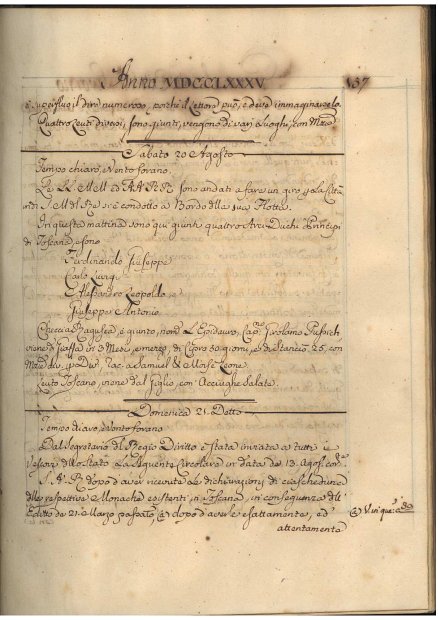 Anno MDCCLXXXV
137
è superfluo il dire numeroso, perchè il Lettore può, e deve immaginarselo.
Quattro Leuti diversi, sono giunti, vengono di vari Luoghi, con
Sabato 20 Agosto
Tempo chiaro, Vento forano.
Le LL. MM. ed AA. RR. sono andati a fare un giro p la Città
indi S. M. del Rè si è condotto a Bordo della sua Flotta.
In questa mattina sono qui giunti quattro Arci Duchi Principi
di Toscana, e sono
Ferdinando Giuseppe
Carlo Luigi
Alessandro Leopoldo e
Giuseppe Antonio
Checcia Ragusea è giunto, nom. L'Epidauro, Cap. Girolamo
viene di Jaffa in 3 Mesi, e mezzo, di Cipro 50 giorni, e di Stancio 25, con
p Div. Rac. a Samuel & Moisè Leone
Leuto Toscano, viene dal Giglio, con Acciughe Salate.
Domenica 21. Detto
Tempo chiaro, e Vento forano
Dal Segretario del Regio Diritto è stata inviata a tutti i
Vescovi dello Stato La Seguente Circolare in data de 13. Agos. cor.
S. A. R. dopo d'aver ricevute Le dichiarazioni di ciascheduna
delle respettive Monache esistenti in Toscana, in conseguenza dell'
Editto de 21. Marzo passato, (a) dopo d'averle esattamente, ed
(a) V. in que:
attentamente